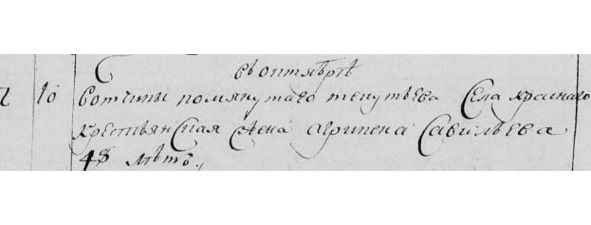 въ октябрѣ
2 10 вотчины помянутаго текутьева Села краснаго
крестьянская жена агрипена Савельева
48 летъ.,